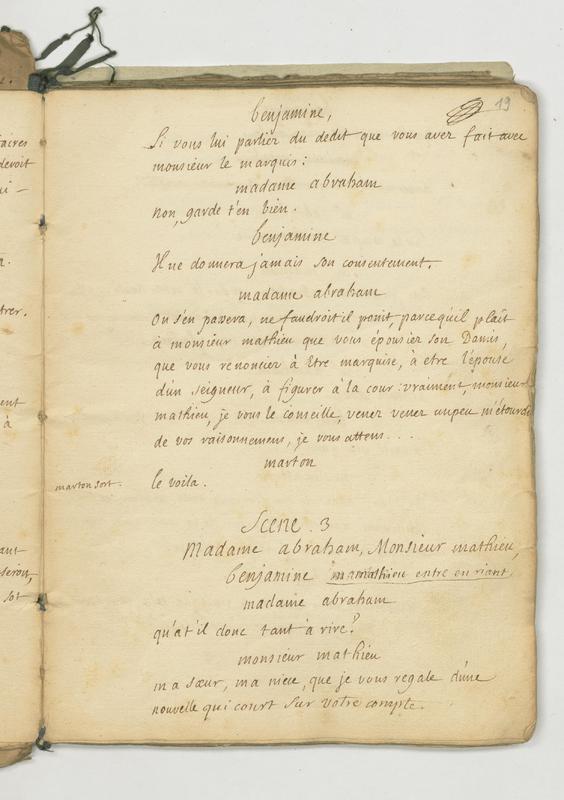 19
benjamine,
Si vous lui parlier du dedit que vous aver fait avec
monsieur le marquis:
madame abraham
non, garde t'en bien.
benjamine
Il ne donnera jamais son consentement.
madame abraham
On s'en passera, ne faudroit il point, parcequ'il plaît
à monsieur mathieu que vous épousier son Damis,
que vous renoncier à être marquise, à etre l'épouse
d'un seigneur, à figurer à la cour: vraiment, monsieur
mathieu, je vous le conseille, vener vener unpeu m'étourdi
de vos raisonnemens, je vous attens...
marton
marton sort. le voila.
Scene. 3
Madame abraham, Monsieur mathieu,
benjamine mathieu entre en riant
madame abraham
qu'at'il donc tant à rire?
monsieur mathieu
ma sœur, ma niece, que je vous regale d'une
nouvelle qui court sur votre compte.
aires
devoit
trer.
ent
à
ant
seroit,
sot